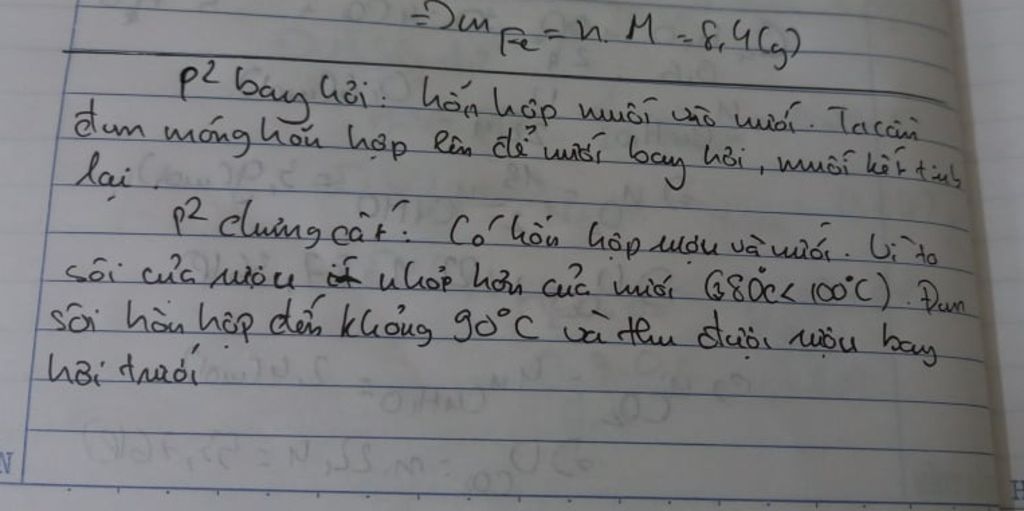 => m Fe = n. M = 8,4(g)
p² bay hơi: hỗn hợp muối và nước. Ta cần
đun nóng hỗn hợp lên để nước bay hơi, muối kết tinh
lại.
p² chưng cất: Có hỗn hợp rượu và nước. Vì to
sôi của rượu nhỏ hơn của nước (380c< 100°C). Đun
sôi hỗn hợp đến khoảng 90°C và thu được rượu bay
hơi trước
N
H